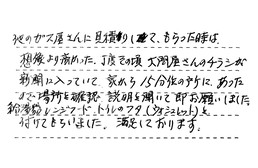 他のガス屋さんに見積りして、もらった時は、
想像より高かった。丁度その頃 大間屋さんのチラシが
新聞に入っていて、家から15分位の所に、あった
ので場所を確認 説明を聞いて即お願いしました。
給湯器 レンジフード トイレのフタ(ウォシュレット)と
付けてもらいました。満足しております。